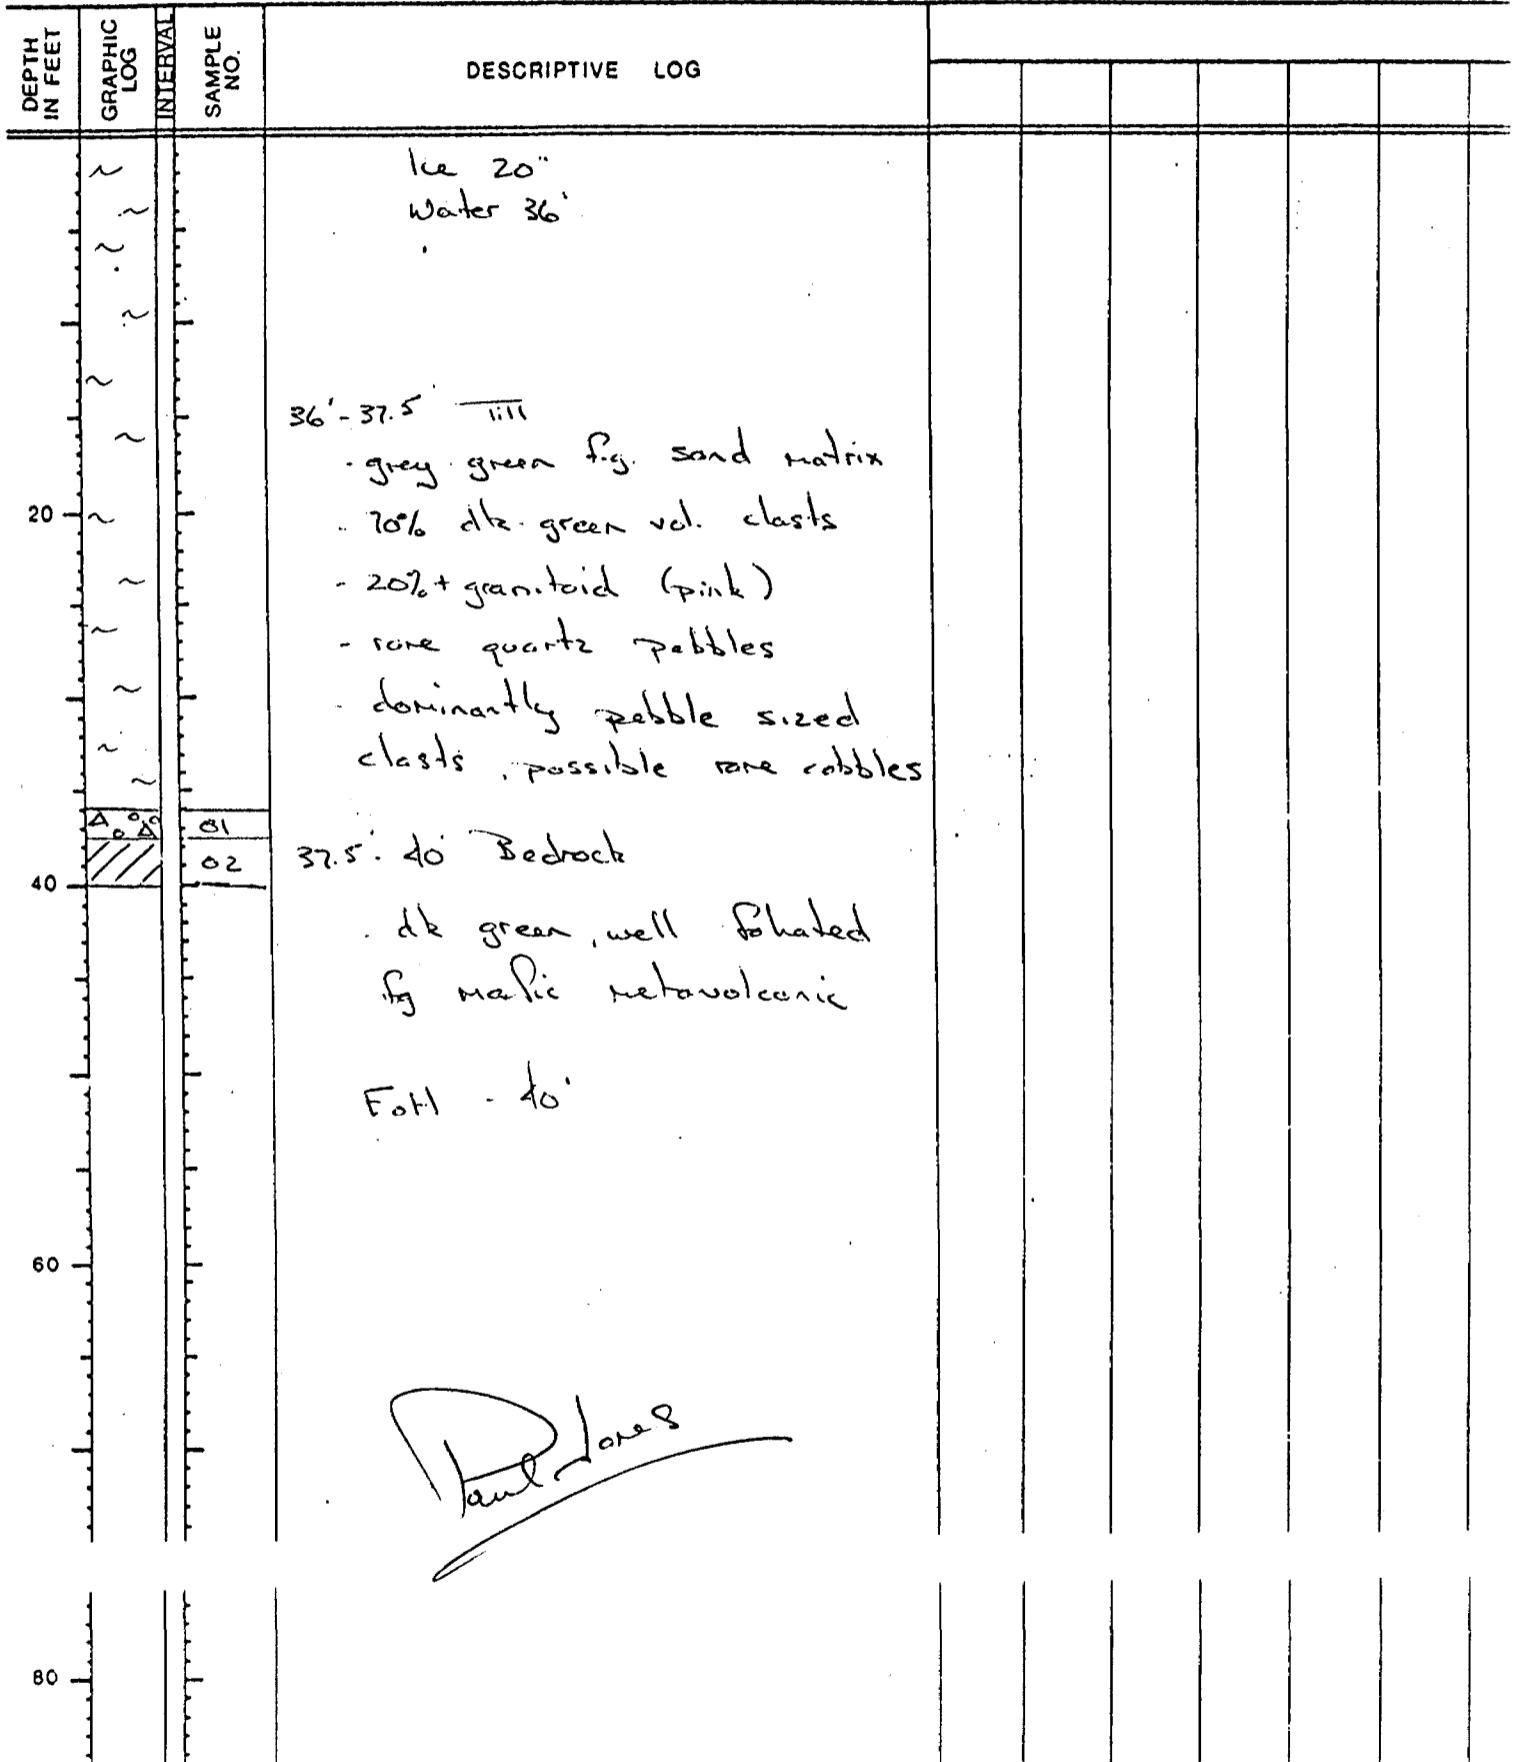 DEPTH IN FEET
GRAPHIC LOG
INTERVAL
SAMPLE NO.
DESCRIPTIVE LOG
Ice 20"
Water 36'
36'-37.5' Till
- grey green f.g. sand matrix
- 70% dk. green vol. clasts
20
- 20%+ granitoid (pink)
- rare quartz pebbles
- dominantly pebble sized
clasts, possible rare cobbles
01
02
37.5'-40' Bedrock
40
- dk green, well foliated
fg mafic metavolcanic
EOH - 40'
60
Paul Jones
80